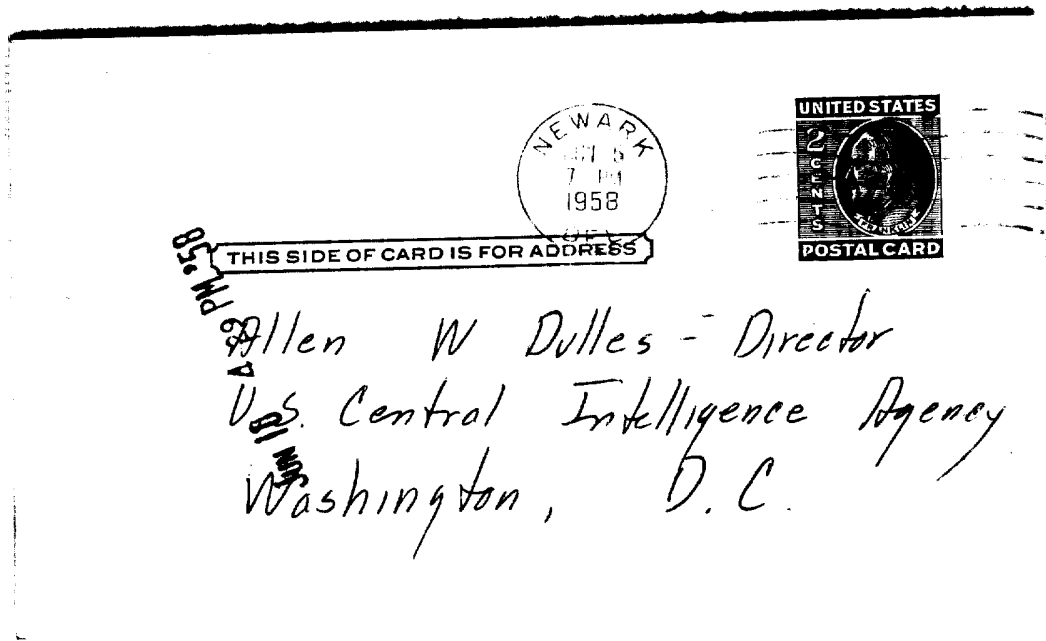 NEWARK
7 PM
1958
DEL.
UNITED STATES
2 CENTS
POSTAL CARD
THIS SIDE OF CARD IS FOR ADDRESS
4 29 PM '58
Allen W Dulles - Director
U.S. Central Intelligence Agency
Washington, D.C.